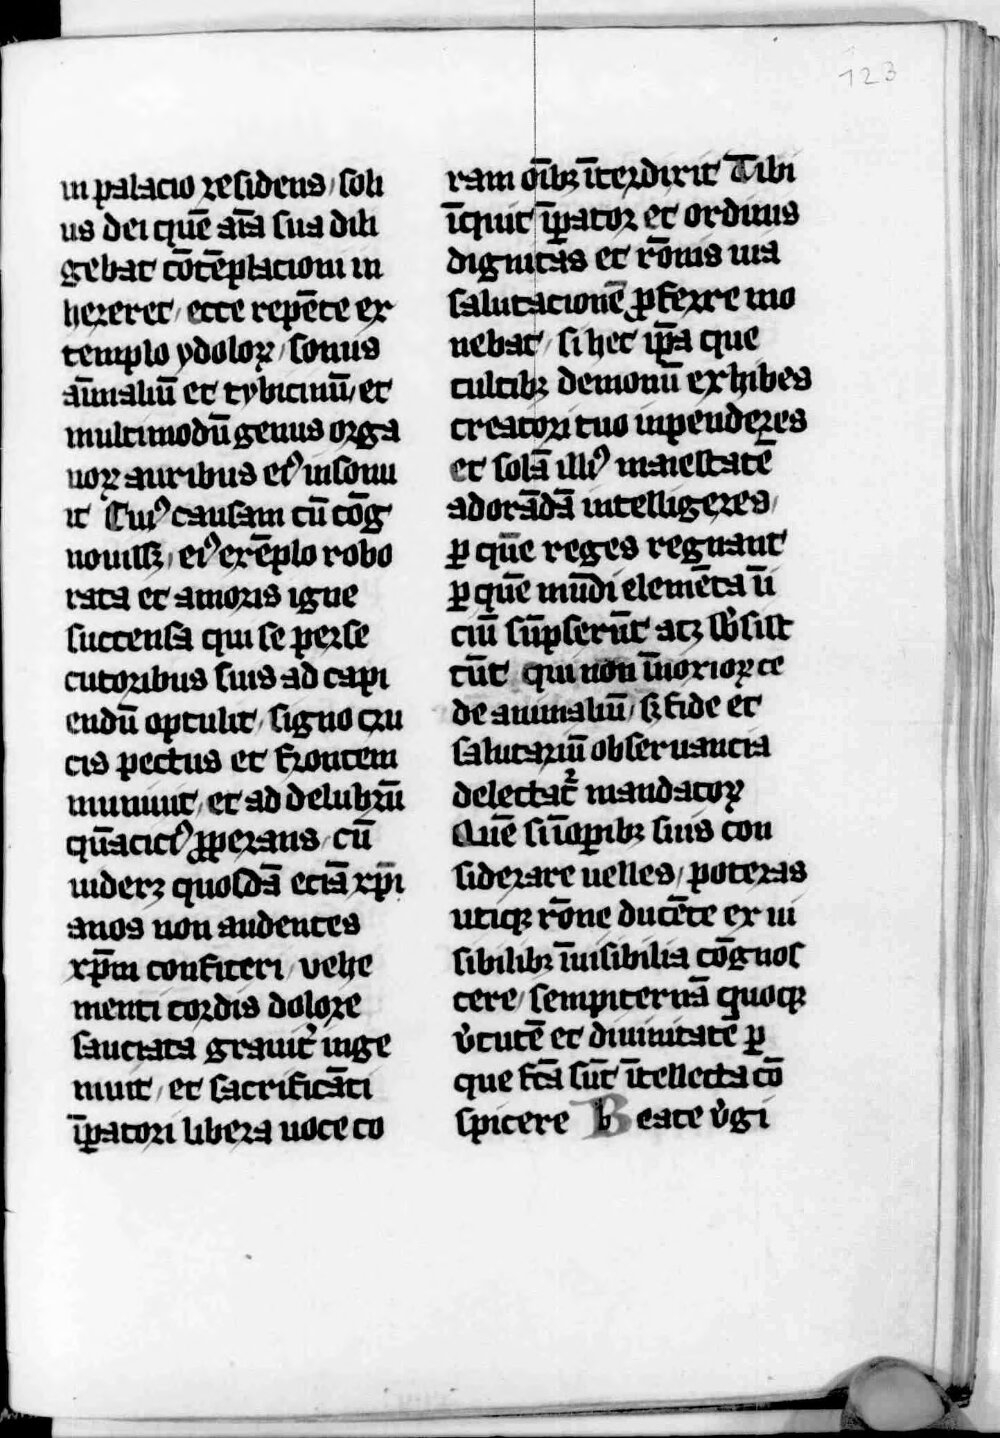 123
in palacio residens / soli
us dei quē aīa sua dili
gebat cōtēplacioni in
hereret / ecce repēte ex
templo ydoloꝝ / sonus
aīmaliū et tybicinū / et
multimodū genus orga
noꝝ auribus eiꝰ insonu
it Cuiꝰ causam cū cōg
nouissꝫ / eiꝰ exēplo robo
rata et amoris igne
succensa qui se perse
cutoribus suis ad capi
endū optulit / signo cru
cis pectus et frontem
muniuit / et ad delubrū
qūacicꝰ ꝓperans / cū
uiderꝫ quosdā eciā xp̄i
anos non audentes
xp̄m confiteri / vehe
menti cordis dolore
sauciata grauit̉ inge
muit / et sacrificāti
īꝑatori libera uoce co
ram oībꝫ īterdixit Tibi
īquit īꝑator et ordinis
dignitas et rōnis uia
salutacionē ꝓferre mo
nebat / si hec ip̄a que
cultibꝫ demonū exhibes
creatori tuo inpenderes
et solā illiꝰ maiestatē
adorādā intelligeres /
ꝑ quē reges regnant
ꝑ quē mūdi elemēta īi
ciū sūpserūt atqꝫ sb̄sist
tūt qui non īmorioꝝ ce
de animaliū / sꝫ fide et
salutariū obseruancia
delectat̉ mandatoꝝ
Quē si īoꝑibꝫ suis con
siderare uelles / poteras
utiqꝫ rōne ducēte ex ui
sibilibꝫ īuisibilia cōgnos
cere / sempiternā quoqꝫ
v̉tutē et diuinitatē ꝑ
que fcā sūt ītellecta cō
spicere Beate v̉gi